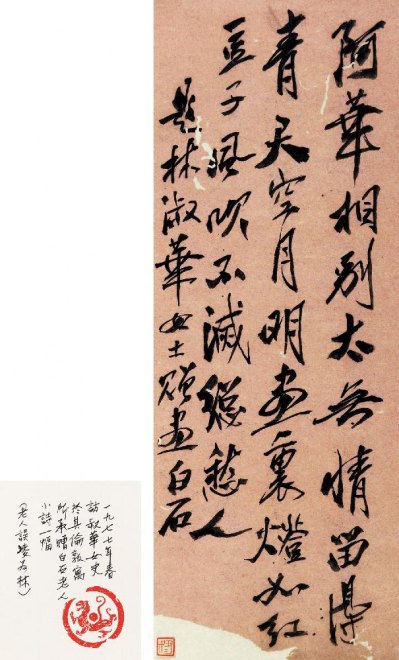 阿華相别太無情留得
青天空月明畫裏燈如紅
豆子風吹不滅總愁人
題林淑華女士贈畫白石
一九七七年春
訪叔華女史
於其倫敦寓
所承贈白石老人
小詩一幅
(老人誤凌為林)